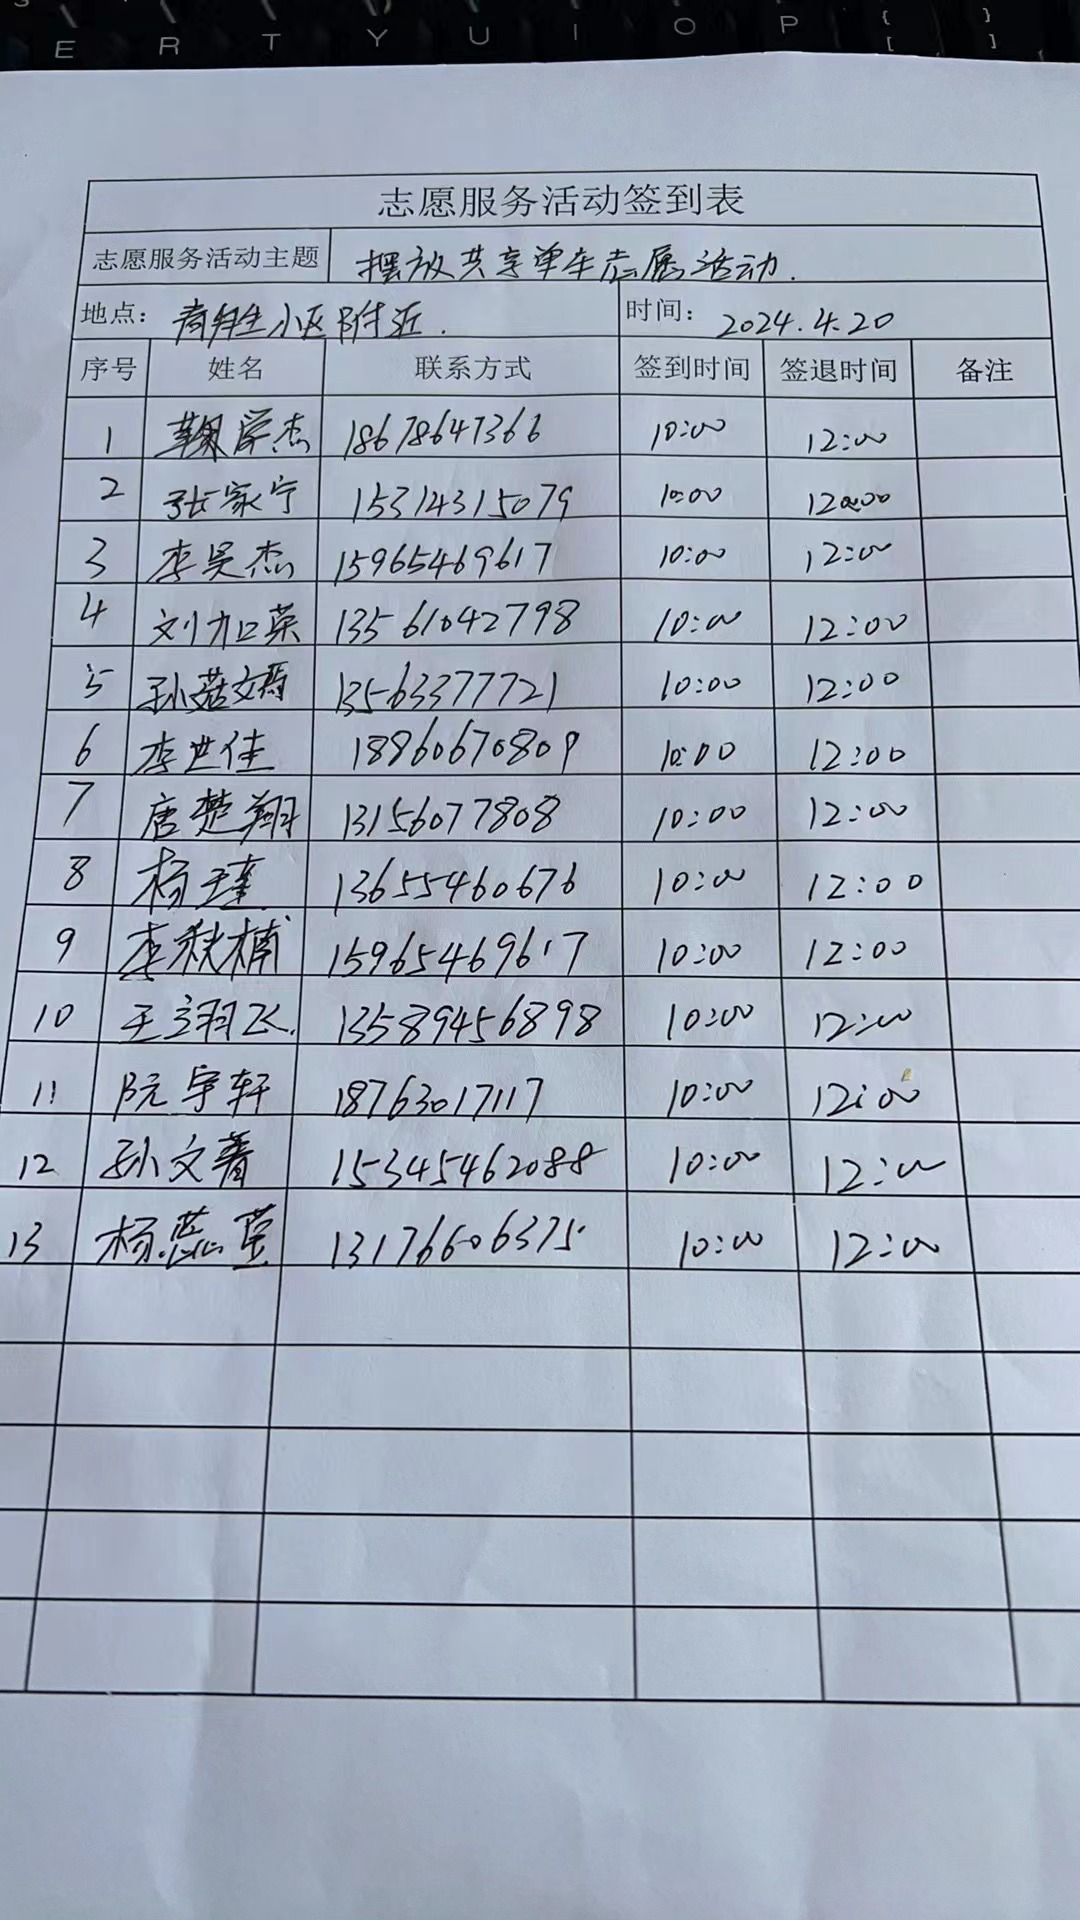 E R T Y U I O P { [ } ]
志愿服务活动签到表
志愿服务活动主题 摆放共享单车志愿活动.
地点: 小区附近. 时间: 2024.4.20
序号 姓名 联系方式 签到时间 签退时间 备注
1 鞠学杰 18678647366 10:00 12:00
2 张家宁 15314315079 10:00 12:00
3 李昊杰 15965469617 10:00 12:00
4 刘加荣 13561042798 10:00 12:00
5 孙菇文焉 13563377721 10:00 12:00
6 李世佳 18860670809 10:00 12:00
7 唐楚翔 13156077808 10:00 12:00
8 杨玉瑾 13655460676 10:00 12:00
9 李秋楠 15965469617 10:00 12:00
10 王翊飞. 13589456898 10:00 12:00
11 阮宇轩 18763017117 10:00 12:00
12 孙文菁 15345462088 10:00 12:00
13 杨蕊莹 13176606375 10:00 12:00